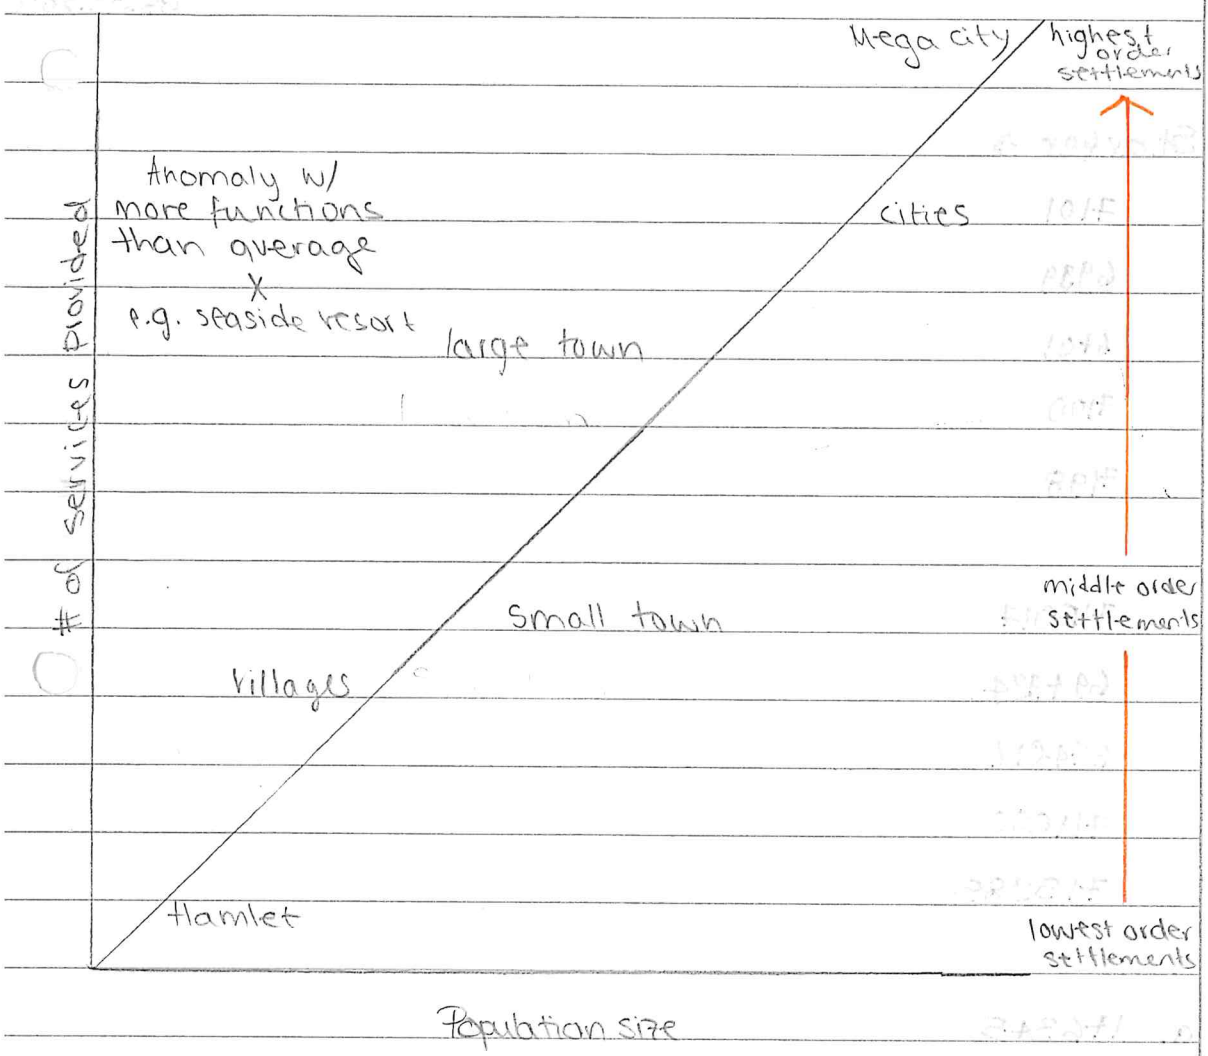 Mega city
highest
order
settlements
Anomaly w/
more functions
than average
X
e.g. seaside resort
cities
large town
# of services provided
middle order
settlements
Small town
Villages
Hamlet
lowest order
settlements
Population size